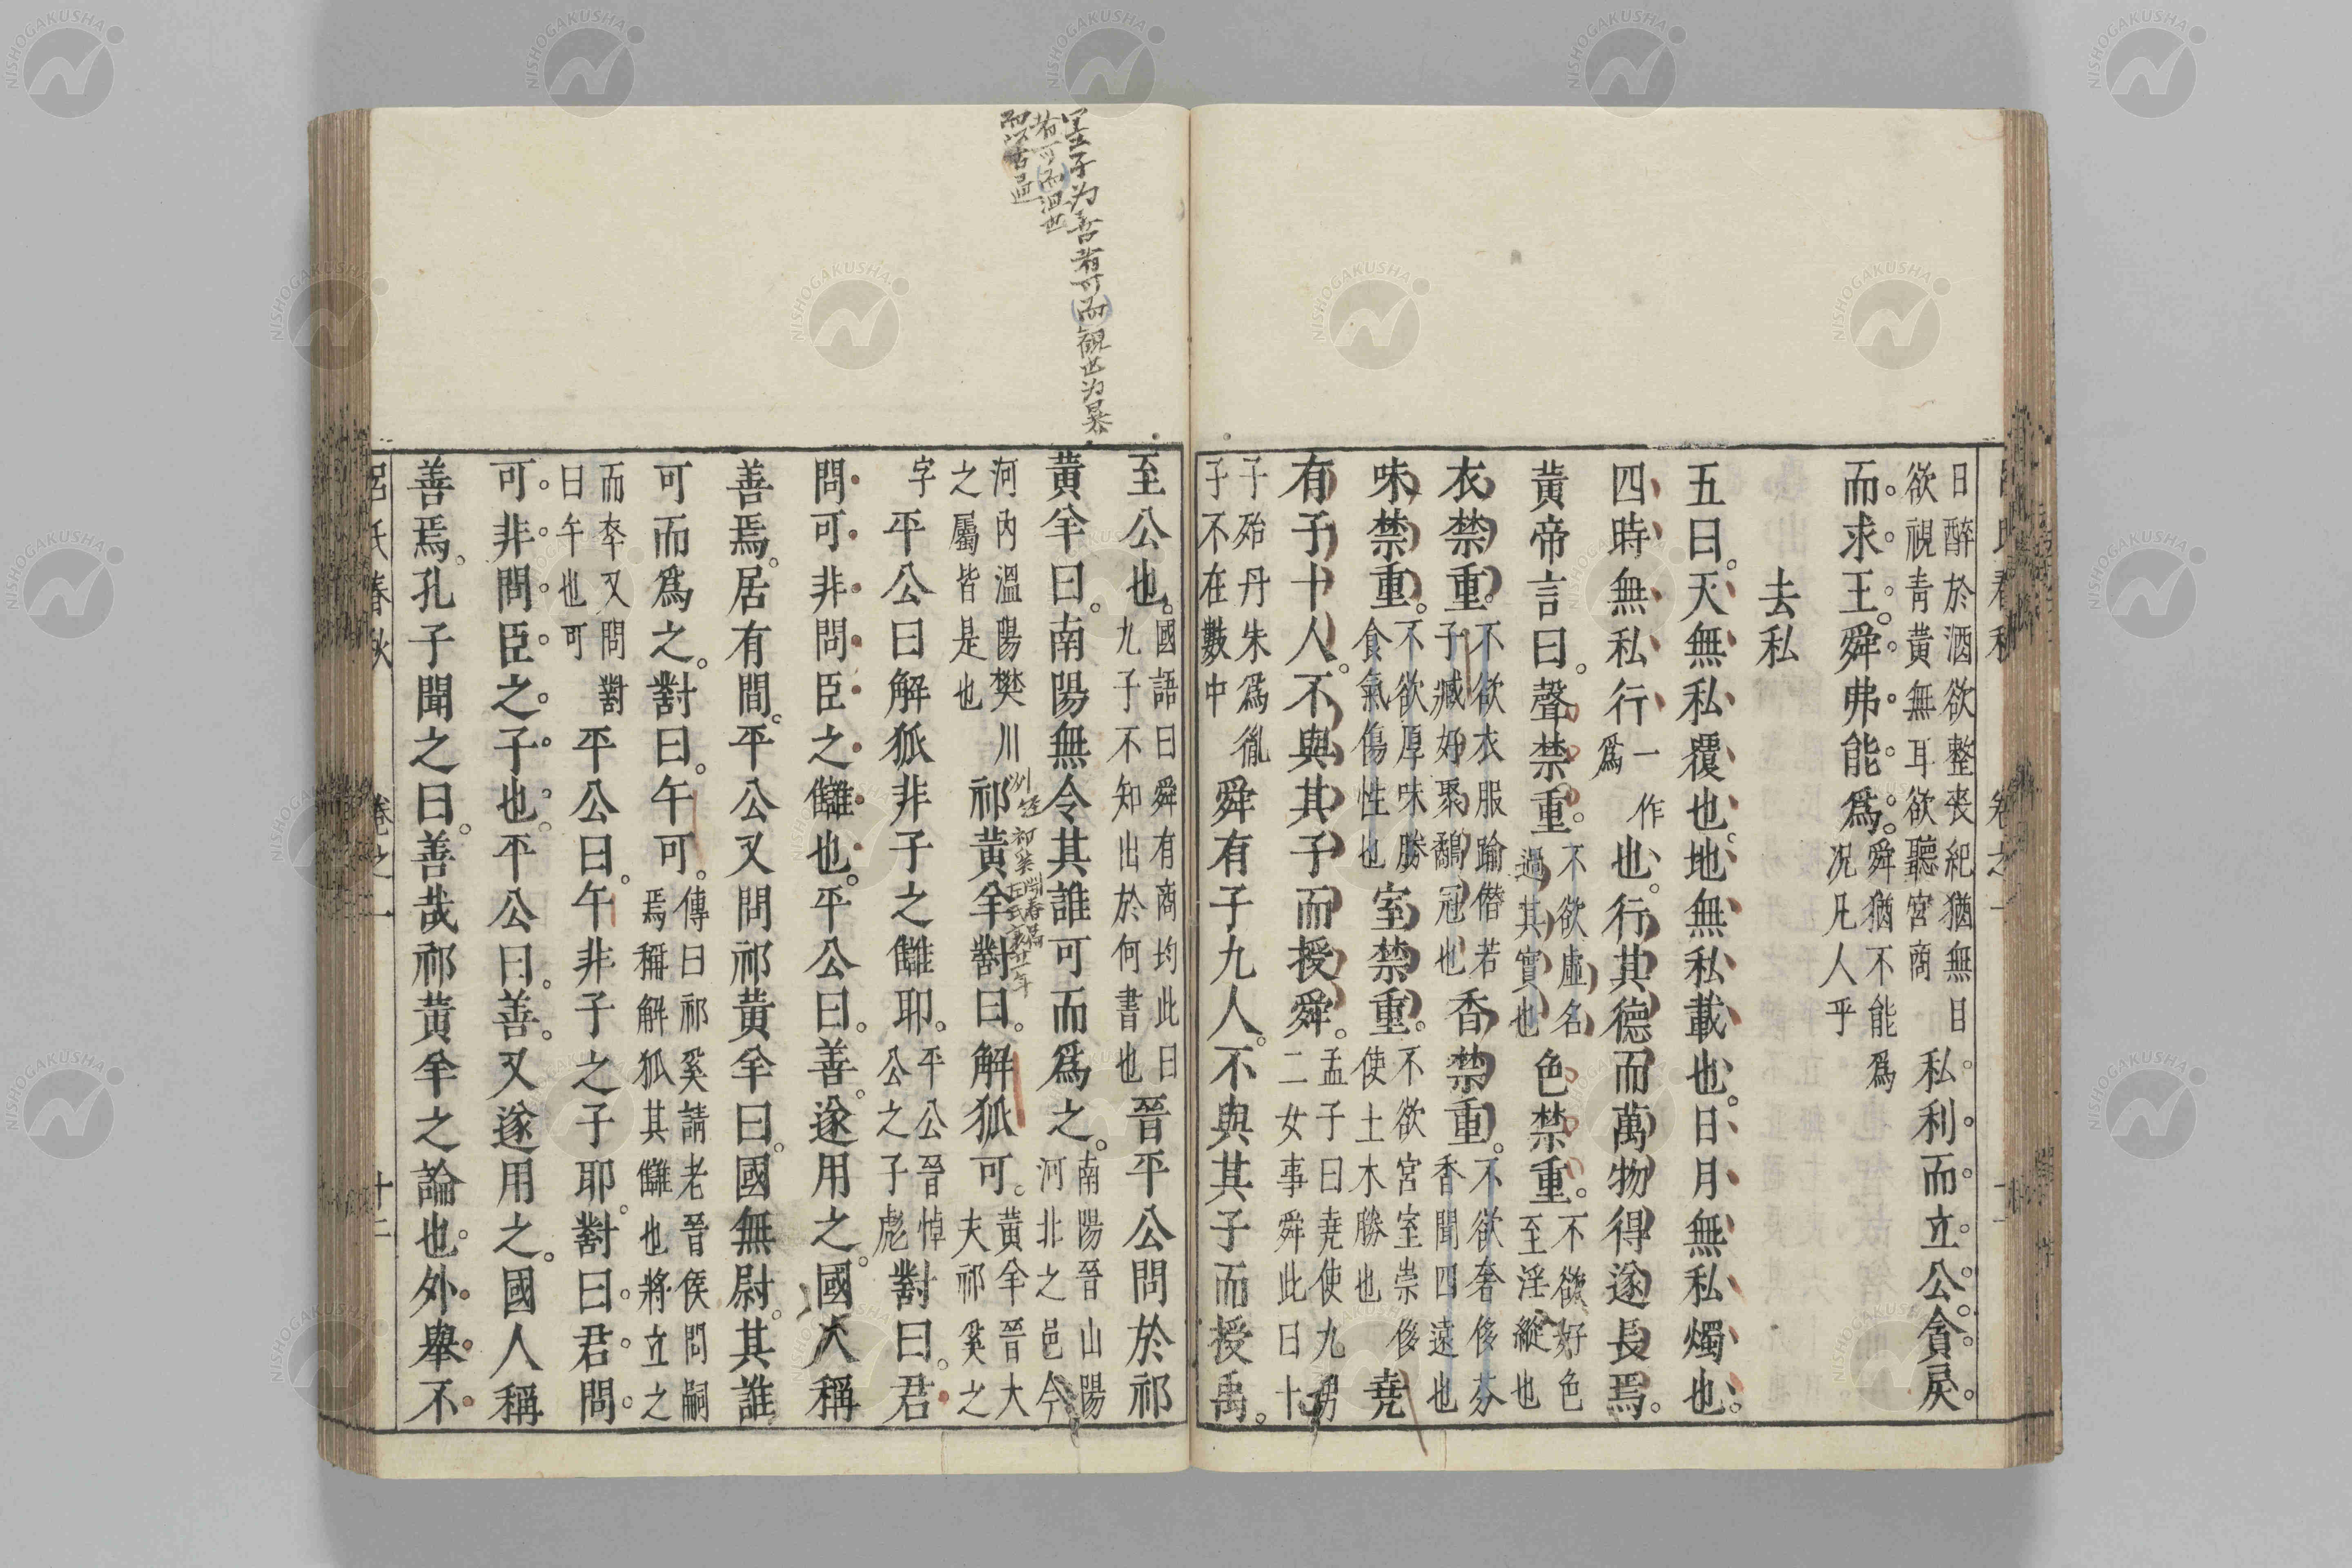 墨子为善者可而観也为暴
者可而沮也
而以古通
日醉於酒欲整喪紀猶無日欲視青黃無耳欲聽宮商私。利。而。立。公。貪。戾。
而。求。王。舜。弗。能。爲。舜猶不能爲况凡人乎
去私
五曰。天無私覆也。地無私載也。日月無私燭也。
四時無私行一作爲也。行其德而萬物得遂長焉。
黃帝言曰。聲禁重。不欲虛名過其實也色禁重。不欲好色至淫縱也
衣禁重。不欲衣服踰僭若子臧好聚鷸冠也香禁重。不欲奢侈芬香聞四遠也
味禁重。不欲厚味勝食氣傷性也室禁重。不欲宮室崇侈使土木勝也堯
有子十人。不與其子而授舜。孟子曰堯使九男二女事舜此曰十
子殆丹朱爲胤子不在數中舜有子九人。不與其子而授禹。
至公也。國語曰舜有商均此曰九子不知出於何書也晉平公問於祁
黃羊曰。南陽無令其誰可而爲之。南陽晉山陽河北之邑今
河内溫陽樊川之屬皆是也祁黃羊對曰。解狐可。黃羊晉大夫祁奚之
祁奚
字平公曰解狐非子之讎耶。平公晉悼公之子彪對曰。君
問可非問臣之讎也。平公曰。善。遂用之。國人稱
善焉。居有間。平公又問祁黃羊曰。國無尉。其誰
可而爲之。對曰。午可。傳曰祁奚請老晉侯問嗣焉稱解狐其讎也將立之
而卒又問對曰午也可平公曰。午非子之子耶。對曰。君。問。
可。非。問。臣。之。子。也。平公曰。善。又遂用之。國人稱
善焉。孔子聞之曰。善哉祁黃羊之論也。外舉不
呂氏春秋 卷之一 十二